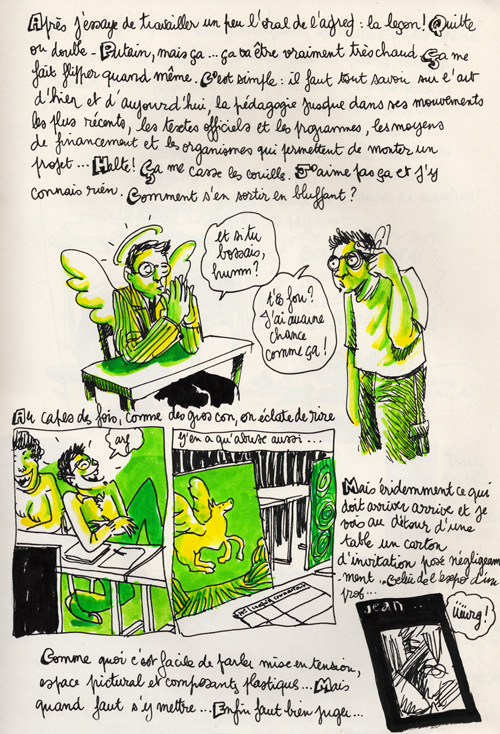 Après j'essaye de travailler un peu l'oral de l'agreg : la leçon ! Quitte
ou double - Putain, mais ça... ça va être vraiment très chaud Ça me
fait flipper quand même. C'est simple : il faut tout savoir sur l'art
d'hier et d'aujourd'hui, la pédagogie jusque dans ses mouvements
les plus récents, les textes officiels et les programmes, les moyens
de financement et les organismes qui permettent de monter un
projet... Halte! Ça me casse les couilles. J'aime pas ça et j'y
connais rien. Comment s'en sortir en bluffant ?
et si tu
bossais,
humm ?
t'es fou ?
J'ai aucune
chance
comme ça !
Au capes des fois, comme des gros con, on éclate de rire
arf
y'en a qu'abuse aussi...
Mais évidemment ce qui
doit arriver arrive et je
vois au détour d'une
table un carton
d'invitation posé négligeam
ment... Celui de l'expo d'un
prof...
jean ...
üüürg!
Comme quoi c'est facile de parler mise en tension,
espace pictural et composants plastiques... Mais
quand faut s'y mettre... Enfin faut bien juger...